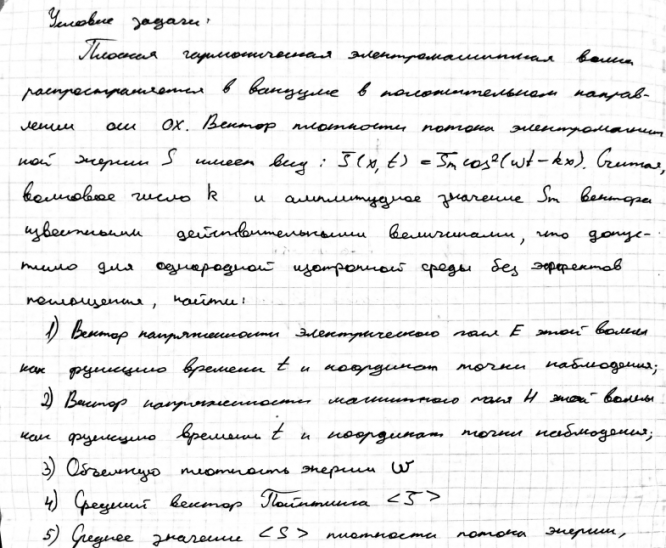 Условие задачи:
Плоская гармоническая электромагнитная волна
распространяется в вакууме в положительном направ-
лении оси OX. Вектор плотности потока электромагнит
ной энергии S имеет вид: S̄(x,t) = S̄m cos²(ωt-kx). Считая,
волновое число k и амплитудное значение Sm вектора
известными действительными величинами, что допус-
тимо для однородной изотропной среды без эффектов
поглощения, найти:
1) Вектор напряженности электрического поля E этой волны
как функцию времени t и координат точки наблюдения;
2) Вектор напряженности магнитного поля H этой волны
как функцию времени t и координат точки наблюдения;
3) Объемную плотность энергии W
4) Средний вектор Пойнтинга <S̄>
5) Среднее значение <S> плотности потока энергии,